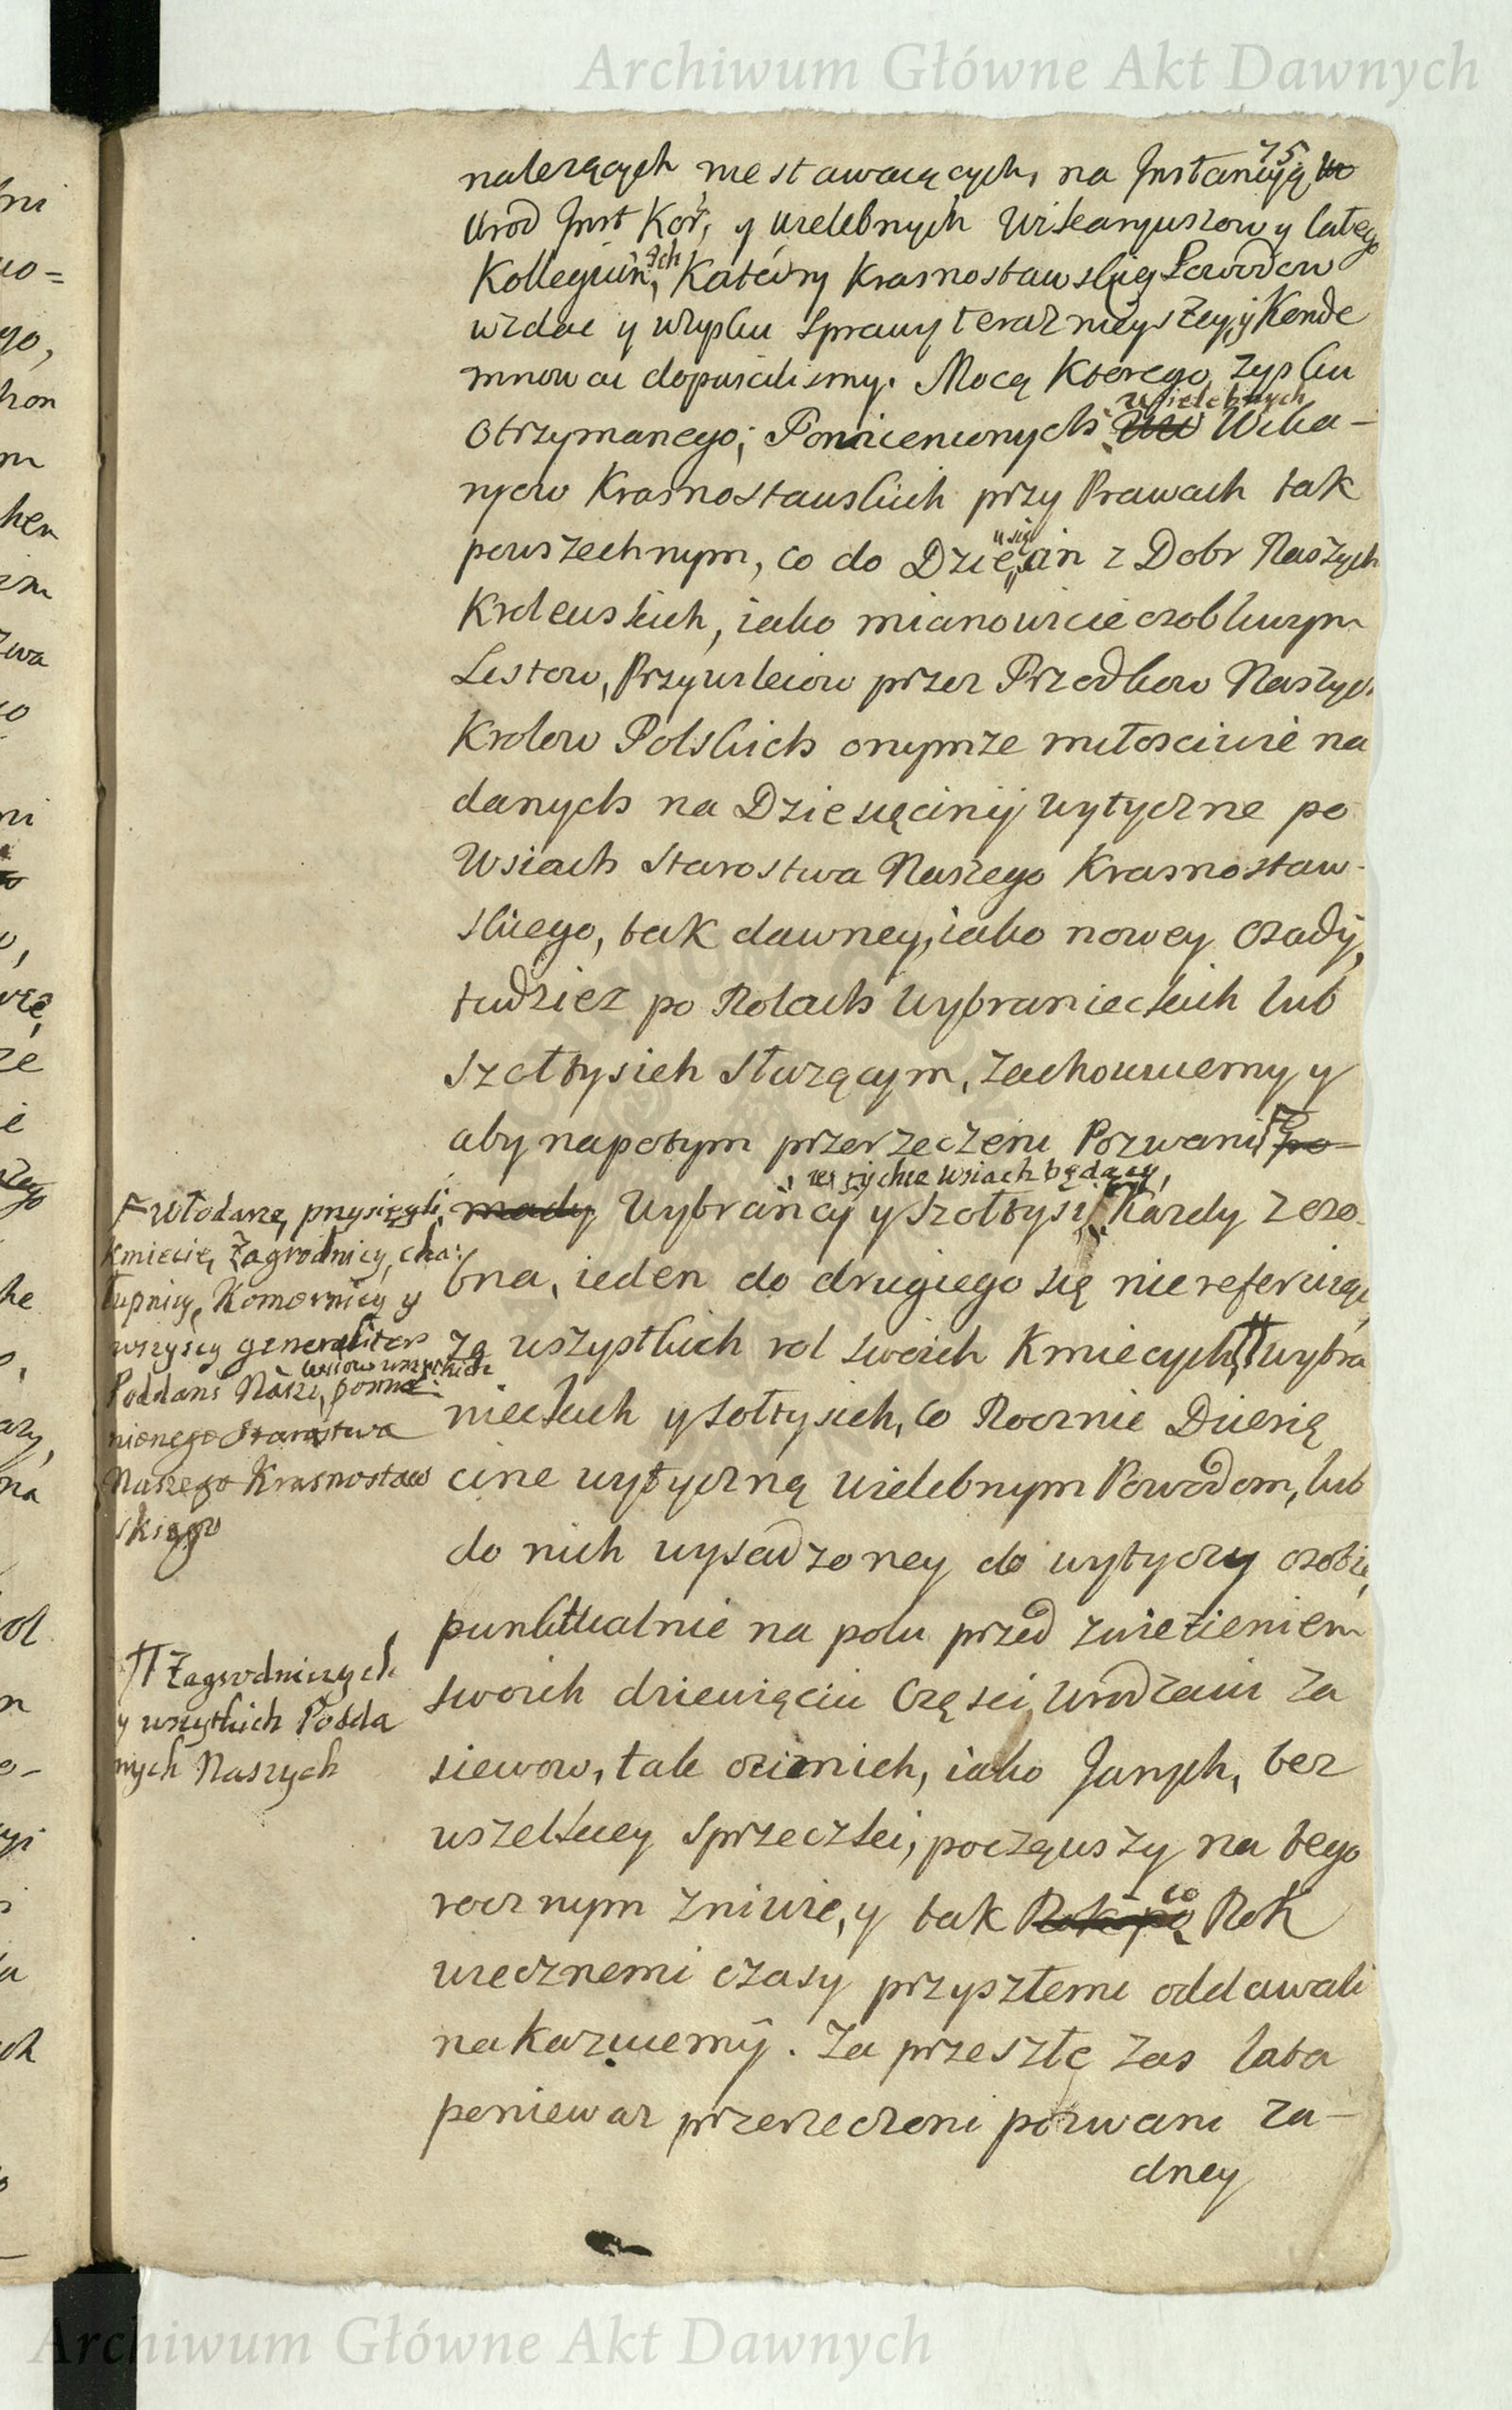 Archiwum Główne Akt Dawnych
75
nalezących nie stawaiących, na Instancyją
Urod Inst Kor, y Wielebnych Wikaryuszow y całego
Kollegium, Katedry Krasnostawskiey Powodow
wzdac y wzysku sprawy teraznieyszey, y Konde
mnowac dopuscilismy. Mocą Ktorego zysku
Wielebnych
otrzymanego; Pomienionych Wika-
ryow Krasnostawskich przy Prawach tak
powszechnym, co do Dziesięcin z Dobr Naszych
Krolewskich, iako mianowicie osobliwym
Listow, Przywileiow przez Przodkow Naszych
Krolow Polskich onymze miłosciwie na
danych na Dziesięciny wytyczne po
Wsiach Starostwa Naszego Krasnostaw-
skiego, tak dawney, iako nowey osady,
tudziez po Rolach Wybranieckich lub
Szołtysich słuzącym, zachowuiemy y
aby napotym przerzeczeni Pozwani po-
w tychze wsiach będący,
mady Wybrańcy y Szołtysi, Kazdy z oso-
bna, ieden do drugiego się nie referuiąc,
za wszystkich rol swoich Kmiecych, wybra
nieckich y sołtysich, co Rocznie Dziesię
cine wytyczną Wielebnym Powodom, lub
do nich wysadzoney do wytyczy osobie,
punktualnie na polu przed zwiezieniem
swoich dziewięciu Częsci Urodzaiu za
siewow, tak ozimich, iako Jarych, bez
wszelkiey sprzeczki, począwszy na tego
rocznym zniwie, y tak Rok po co Rok
wiecznemi czasy przyszłemi oddawali
nakazuiemy. Za przeszłe zas lata
poniewaz przerzeczeni pozwani za-
dney
Włodarze, przysięgli,
Kmiecie, Zagrodnicy, cha:
łupnicy, Komornicy y
wszyscy generaliter
wsiow wszystkich
Poddani Nasi, pomie:
nionego Starostwa
Naszego Krasnostaw
skiego
Zagrodniczych
y wszytkich Podda
nych Naszych
Archiwum Główne Akt Dawnych